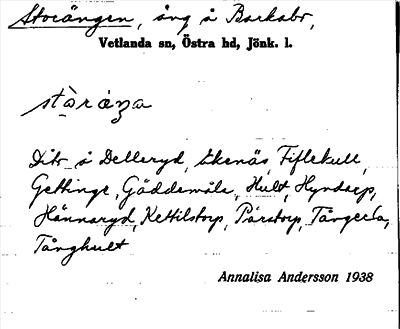 Storängen, äng å Backabo,
Vetlanda sn, Östra hd, Jönk. l.
Dito å Delleryd, Ekenäs, Fiflekull,
Gettinge, Gäddemåla, Hult, Hyndarp,
Hännaryd, Kettilstorp, Pärstorp, Tångerda,
Tånghult
Annalisa Andersson 1938